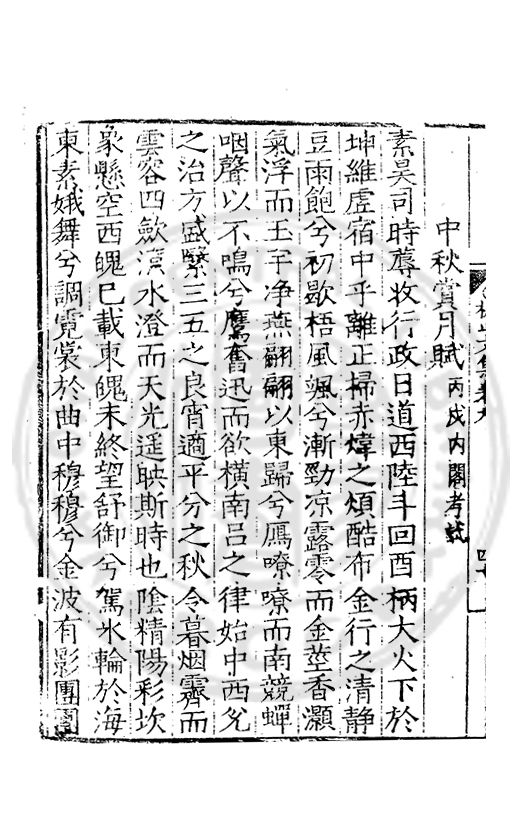 中秋賞月賦丙戌內閣考試
素昊司時蓐收行政日道西陸斗回酉柄大火下於
坤維虛宿中乎離正掃赤煒之煩酷布金行之清靜
豆雨飽兮初歇梧風颯兮漸勁凉露零而金莖香灝
氣浮而玉宇净燕翩翩以東歸兮鴈嘹嘹而南競蟬
咽聲以不鳴兮鷹奮迅而欲橫南呂之律始中西兊
之治方盛繄三五之良宵適平分之秋令暮烟霽而
雲容四歛滄水澄而天光遥映斯時也陰精陽彩坎
象懸空西魄巳載東魄未終望舒御兮駕氷輪於海
東素娥舞兮調霓裳於曲中穆穆兮金波有影團團